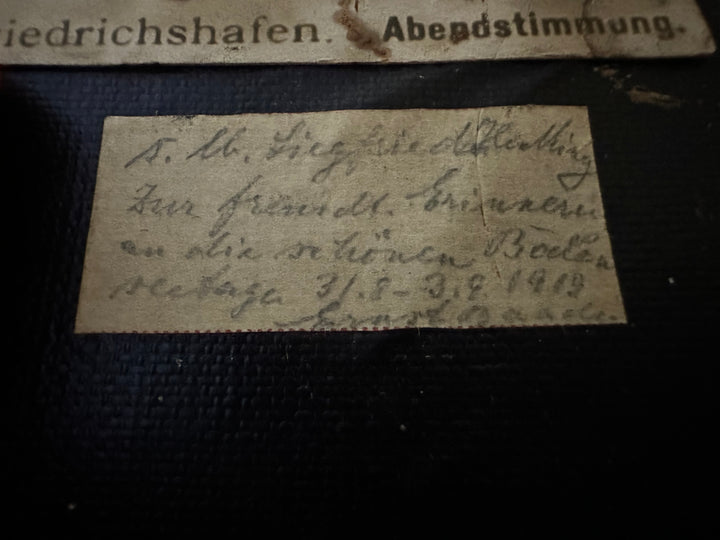 iedrichshafen. Abendstimmung.
s. lb. Siegfried
Zur freundl. Erinneru
an die schönen Boden
seetage 31.8 – 3.9 1913
Ernst Baade.